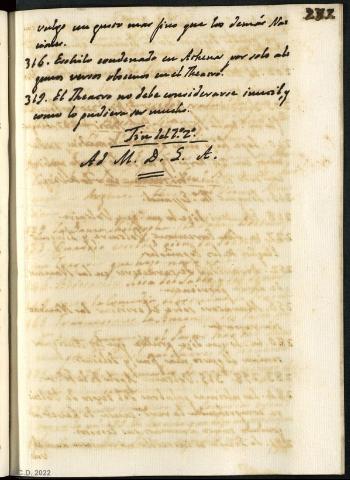 232
vulgo un gusto mas fino que los demás Na
ciones.
316. Eschilo condenado en Athenas por solo al
gunos versos obscenos en el Theatro.
319. El Theatro no debe considerarse inutil, y
como lo pudiera ser mucho.
Fin del T. 2º
Ad M. D. G. A.
C.D. 2022